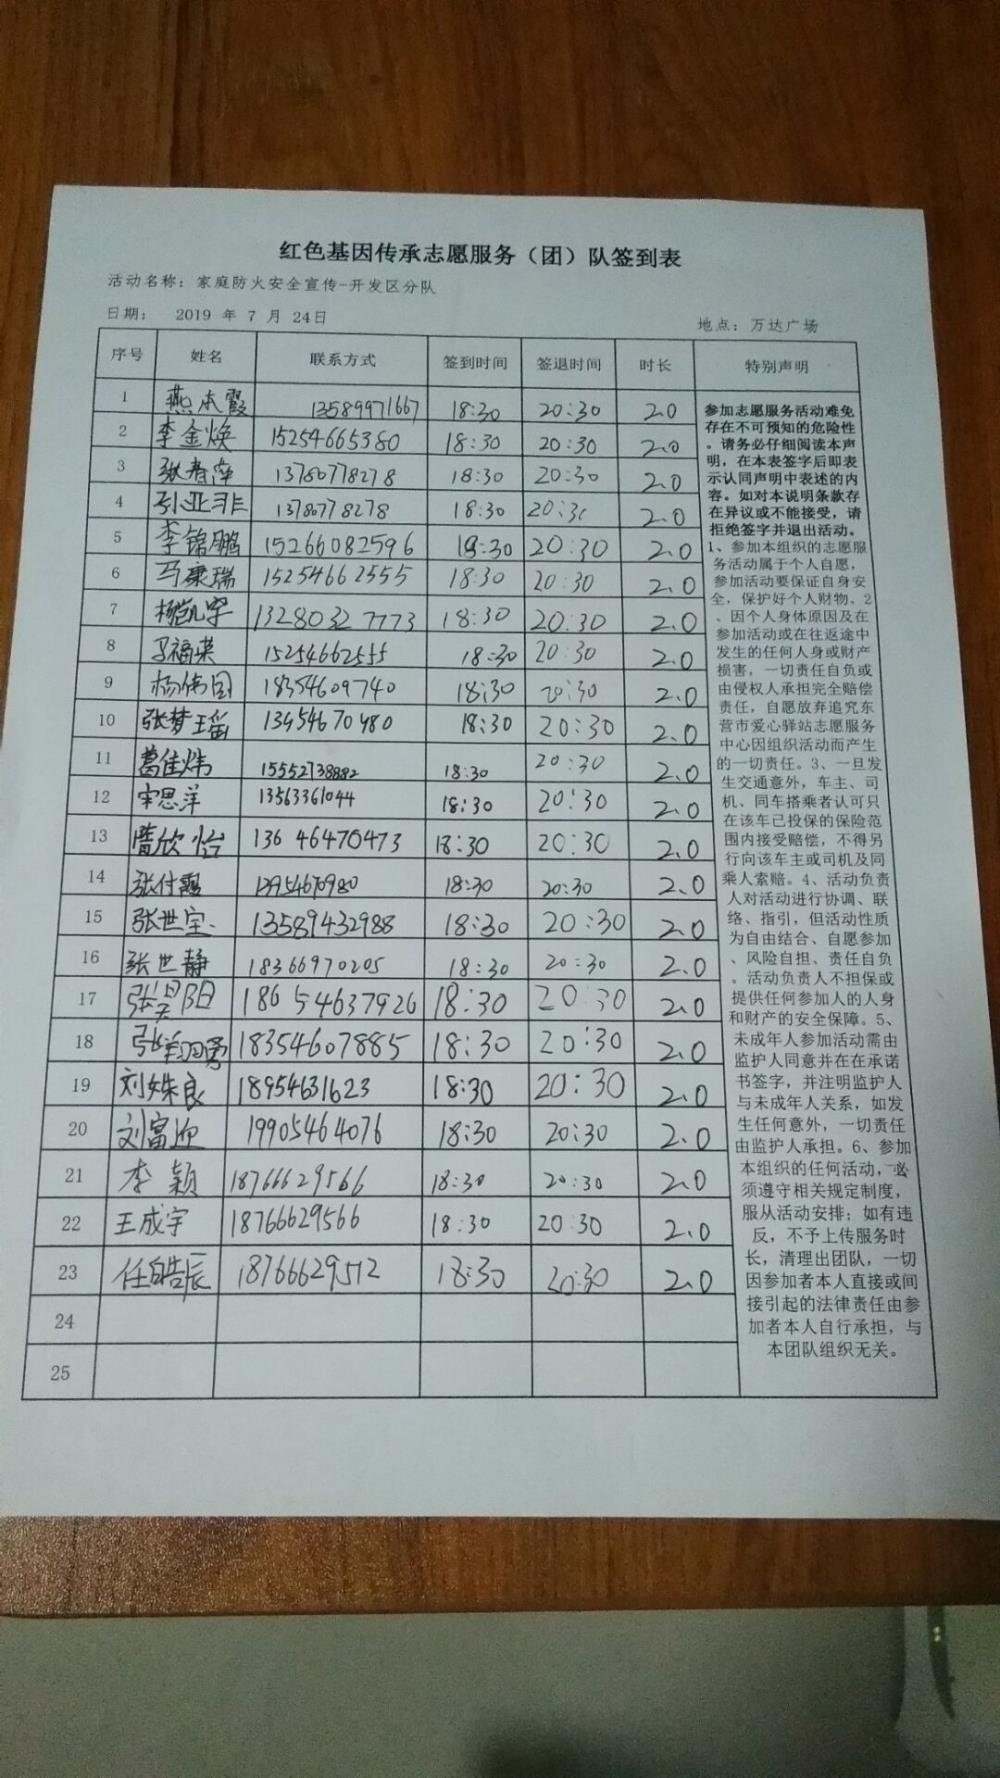 红色基因传承志愿服务（团）队签到表
活动名称：家庭防火安全宣传-开发区分队
日期： 2019 年 7 月 24日 地点：万达广场
序号 姓名 联系方式 签到时间 签退时间 时长 特别声明
1 燕本霞 13589971667 18:30 20:30 2.0
2 李金焕 15254665380 18:30 20:30 2.0
3 张春萍 13780778278 18:30 20:30 2.0
4 孙亚菲 13780778278 18:30 20:30 2.0
5 李锦鹏 15266082596 18:30 20:30 2.0
6 马康瑞 15254662555 18:30 20:30 2.0
7 杨凯宇 13280327773 18:30 20:30 2.0
8 马福荣 15254662555 18:30 20:30 2.0
9 杨伟国 18354609740 18:30 20:30 2.0
10 张梦瑶 13954670980 18:30 20:30 2.0
11 葛佳炜 15552738882 18:30 20:30 2.0
12 宋思洋 13563361044 18:30 20:30 2.0
13 曹欣怡 13646470473 18:30 20:30 2.0
14 张付霞 13954670980 18:30 20:30 2.0
15 张世宝 13589432988 18:30 20:30 2.0
16 张世静 18366970205 18:30 20:30 2.0
17 张昊阳 18654637926 18:30 20:30 2.0
18 张翔勇 18354607885 18:30 20:30 2.0
19 刘姝良 18954631623 18:30 20:30 2.0
20 刘富迎 19905464076 18:30 20:30 2.0
21 李颖 18766629566 18:30 20:30 2.0
22 王成宇 18766629566 18:30 20:30 2.0
23 任皓辰 18766629512 18:30 20:30 2.0
24
25
参加志愿服务活动难免
存在不可预知的危险性
。请务必仔细阅读本声
明，在本表签字后即表
示认同声明中表述的内
容。如对本说明条款存
在异议或不能接受，请
拒绝签字并退出活动。
1、参加本组织的志愿服
务活动属于个人自愿，
参加活动要保证自身安
全，保护好个人财物。2
、因个人身体原因及在
参加活动或在往返途中
发生的任何人身或财产
损害，一切责任自负或
由侵权人承担完全赔偿
责任，自愿放弃追究东
营市爱心驿站志愿服务
中心因组织活动而产生
的一切责任。3、一旦发
生交通意外，车主、司
机、同车搭乘者认可只
在该车已投保的保险范
围内接受赔偿，不得另
行向该车主或司机及同
乘人索赔。4、活动负责
人对活动进行协调、联
络、指引，但活动性质
为自由结合、自愿参加
、风险自担、责任自负
。活动负责人不担保或
提供任何参加人的人身
和财产的安全保障。5、
未成年人参加活动需由
监护人同意并在在承诺
书签字，并注明监护人
与未成年人关系，如发
生任何意外，一切责任
由监护人承担。6、参加
本组织的任何活动，必
须遵守相关规定制度，
服从活动安排；如有违
反，不予上传服务时
长，清理出团队，一切
因参加者本人直接或间
接引起的法律责任由参
加者本人自行承担，与
本团队组织无关。